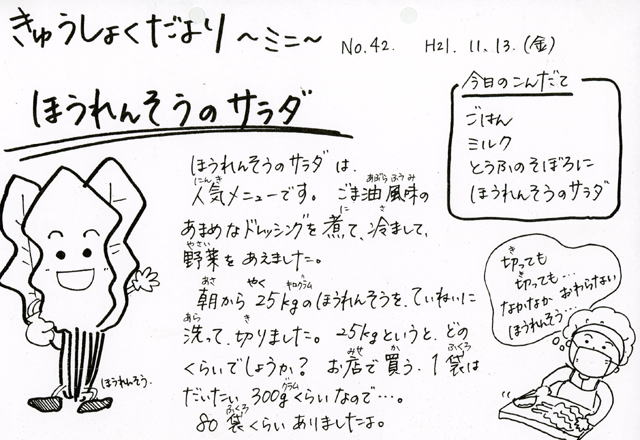 きゅうしょくだより ～ミニ～ No.42. H21.11.13.(金)
ほうれんそうのサラダ
今日のこんだて
ごはん
ミルク
とうふのそぼろに
ほうれんそうのサラダ
ほうれんそうのサラダは、
人気メニューです。ごま油風味の
あまめなドレッシングを煮て、冷まして、
野菜をあえました。
朝から25kgのほうれんそうを、ていねいに
洗って、切りました。25kgというと、どの
くらいでしょうか？ お店で買う、1袋は
だいたい300gくらいなので…。
80袋くらいありましたよ。
ほうれんそう.
切っても
切っても…
なかなかおわらない
ほうれんそう…